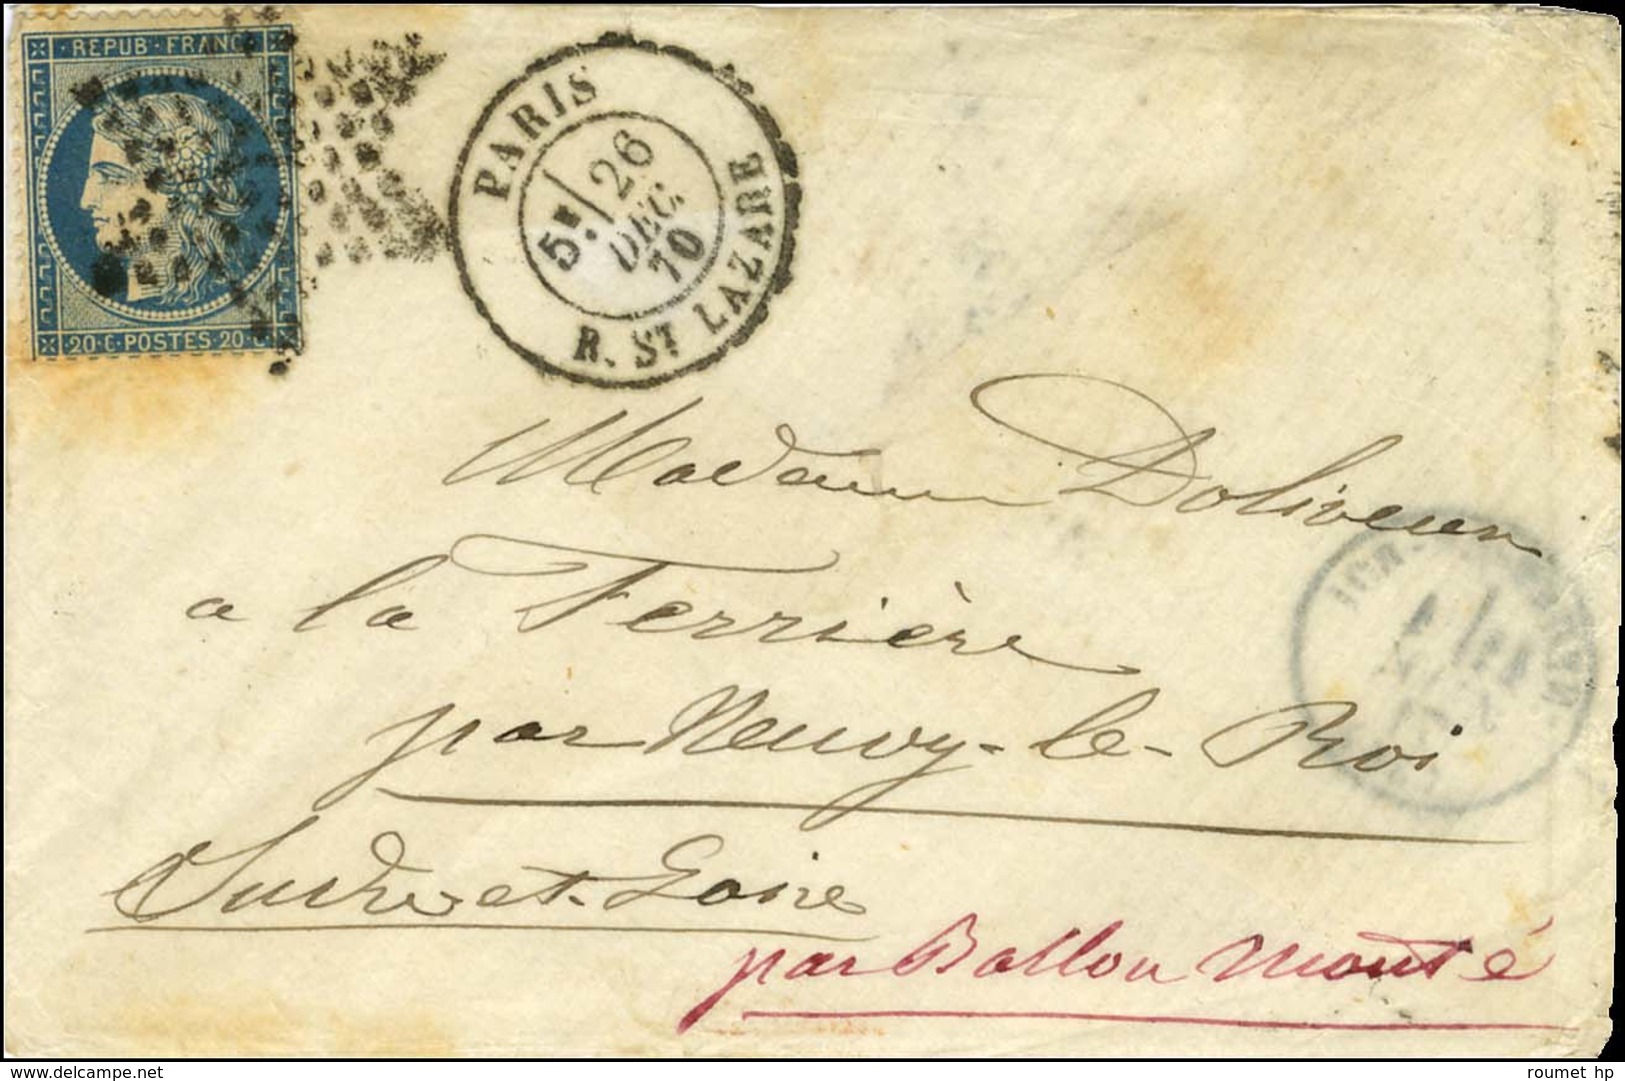 REPUB · FRANC
20 · C · POSTES · 20 · C
PARIS
5E / 26
DEC.
70
R. ST LAZARE
Madame
a la Ferrière
par Neuvy-le-Roi
Indre et Loire
par Ballon Monté
roumet hp